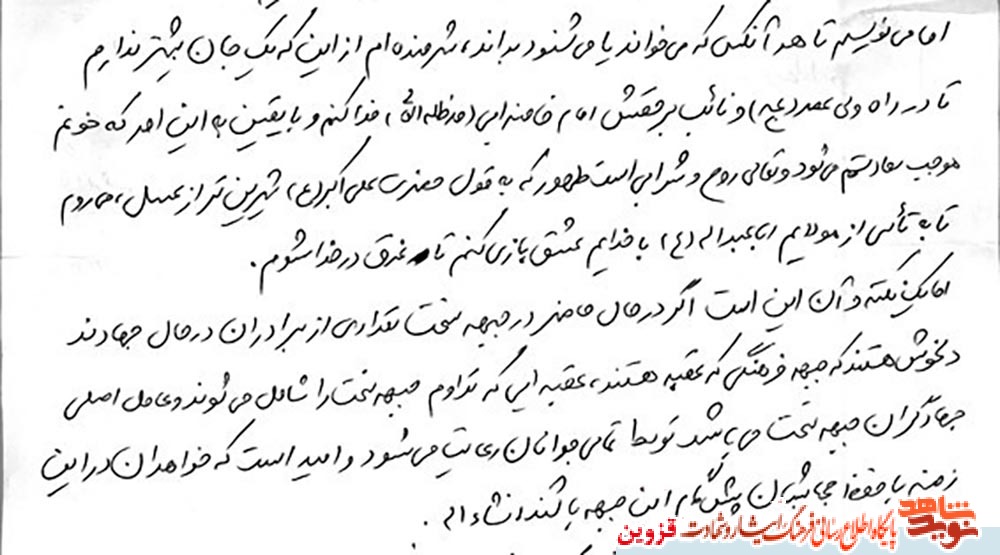 اما می نویسم تا هر آنکس که می خواند یا می شنود بداند، شرمنده ام از این که یک جان بیشتر ندارم
تا در راه ولی عصر (عج) و نائب برحقش امام خامنه ایی (مدظله العالی) فدا کنم و با یقین به این امر که خونم
موجب سعادتم می شود و تعالی روح و شرابی است طهور که به قول حضرت علی اکبر (ع) شیرین تر از عسل، می روم
تا به تأسی از مولایم اباعبداله (ع) با خدایم عشق بازی کنم تا غرق در خدا شوم.
اما یک نکته و آن این است اگر در حال حاضر در جبهه سخت تعدادی از برادران در حال جهادند
دلخوش هستند که جبهه فرهنگی که عقبه هستند، عقبه ایی که تداوم جبهه سخت را شامل می شوند و عامل اصلی
جهادگران جبهه سخت می باشد توسط تمامی جوانان رعایت می شود و امید است که خواهران در این
زمینه با حفظ حجابشان پیش گام این جبهه باشند انشاء اله.
نوید شاهد
پایگاه اطلاع رسانی فرهنگ ایثار و شهادت قزوین